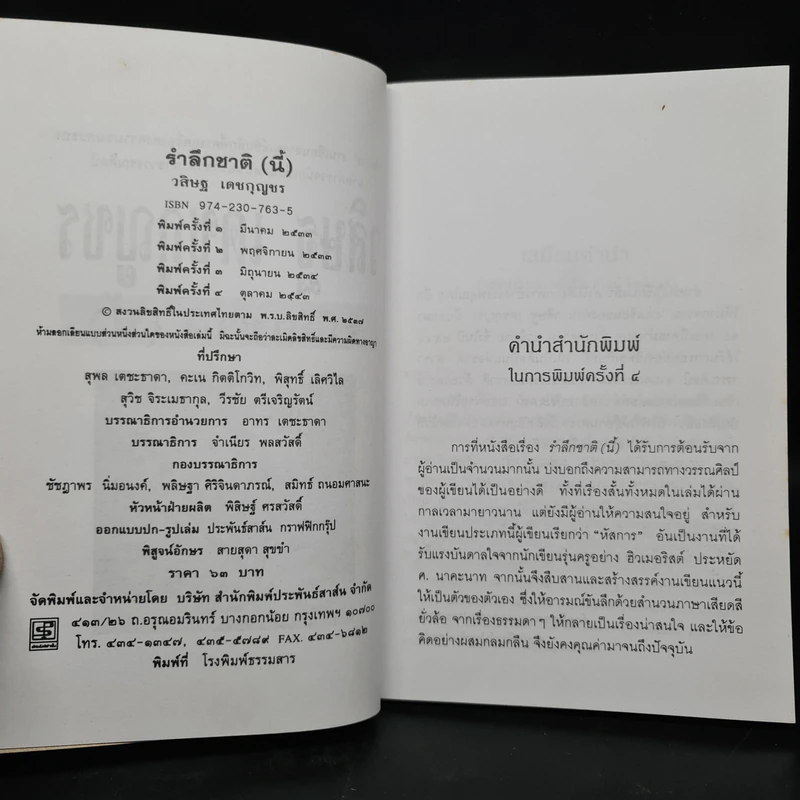 รำลึกชาติ (นี้)
วสิษฐ เดชกุญชร
ISBN 974-230-763-5
พิมพ์ครั้งที่ ๑ มีนาคม ๒๕๓๓
พิมพ์ครั้งที่ ๒ พฤศจิกายน ๒๕๓๓
พิมพ์ครั้งที่ ๓ มิถุนายน ๒๕๓๔
พิมพ์ครั้งที่ ๔ ตุลาคม ๒๕๔๓
© สงวนลิขสิทธิ์ในประเทศไทยตาม พ.ร.บ.ลิขสิทธิ์ พ.ศ. ๒๕๓๗
ห้ามลอกเลียนแบบส่วนหนึ่งส่วนใดของหนังสือเล่มนี้ มิฉะนั้นจะถือว่าละเมิดลิขสิทธิ์และมีความผิดทางอาญา
ที่ปรึกษา
สุพล เตชะธาดา, คะเน กิตติโกวิท, พิสุทธิ์ เลิศวิไล
สุวิช จิระเมธากุล, วีรชัย ตรีเจริญรัตน์
บรรณาธิการอำนวยการ อาทร เตชะธาดา
บรรณาธิการ จำเนียร พลสวัสดิ์
กองบรรณาธิการ
ชัชฎาพร นิ่มอนงค์, พลิษฐา ศิริจินดาภรณ์, สมิทธ์ ถนอมศาสนะ
หัวหน้าฝ่ายผลิต พิสิษฐ์ ศรสวัสดิ์
ออกแบบปก-รูปเล่ม ประพันธ์สาส์น กราฟฟิกกรุ๊ป
พิสูจน์อักษร สายสุดา สุขขำ
ราคา ๖๓ บาท
จัดพิมพ์และจำหน่ายโดย บริษัท สำนักพิมพ์ประพันธ์สาส์น จำกัด
๔๑๓/๒๖ ถ.อรุณอมรินทร์ บางกอกน้อย กรุงเทพฯ ๑๐๗๐๐
โทร. ๔๓๔-๑๓๔๗, ๔๓๕-๕๗๘๙ FAX. ๔๓๔-๖๘๑๒
พิมพ์ที่ โรงพิมพ์ธรรมสาร
คำนำสำนักพิมพ์
ในการพิมพ์ครั้งที่ ๔
การที่หนังสือเรื่อง รำลึกชาติ (นี้) ได้รับการต้อนรับจาก
ผู้อ่านเป็นจำนวนมากนั้น บ่งบอกถึงความสามารถทางวรรณศิลป์
ของผู้เขียนได้เป็นอย่างดี ทั้งที่เรื่องสั้นทั้งหมดในเล่มได้ผ่าน
กาลเวลามายาวนาน แต่ยังมีผู้อ่านให้ความสนใจอยู่ สำหรับ
งานเขียนประเภทนี้ผู้เขียนเรียกว่า “หัสการ” อันเป็นงานที่ได้
รับแรงบันดาลใจจากนักเขียนรุ่นครูอย่าง ฮิวเมอริสต์ ประหยัด
ศ. นาคะนาท จากนั้นจึงสืบสานและสร้างสรรค์งานเขียนแนวนี้
ให้เป็นตัวของตัวเอง ซึ่งให้อารมณ์ขันลึกด้วยสำนวนภาษาเสียดสี
ยั่วล้อ จากเรื่องธรรมดาๆ ให้กลายเป็นเรื่องน่าสนใจ และให้ข้อ
คิดอย่างผสมกลมกลืน จึงยังคงคุณค่ามาจนถึงปัจจุบัน